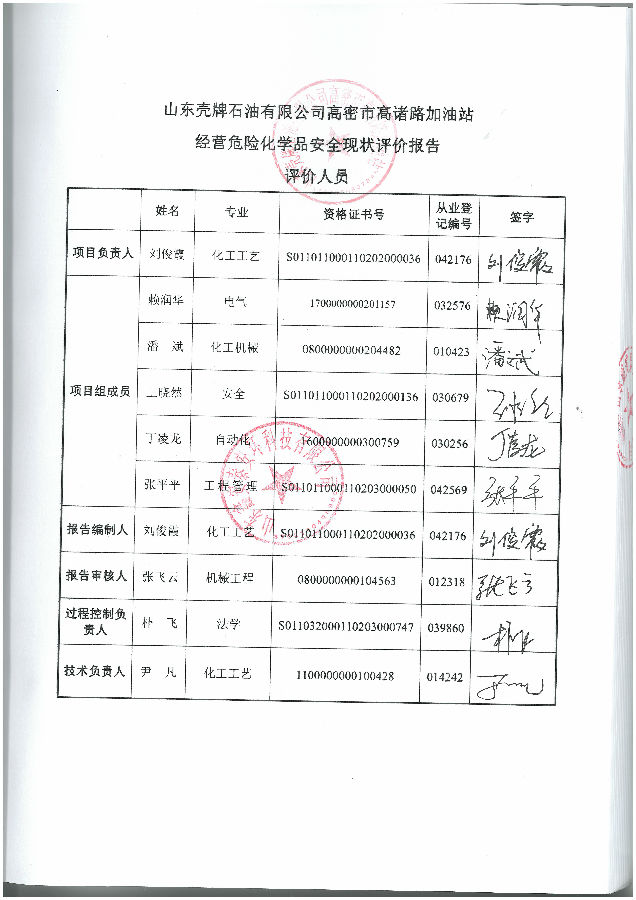 山东壳牌石油有限公司高密市高诸路加油站
经营危险化学品安全现状评价报告
评价人员
姓名 专业 资格证书号 从业登记编号 签字
项目负责人 刘俊霞 化工工艺 S011011000110202000036 042176 刘俊霞
项目组成员 赖润华 电气 1700000000201157 032576 赖润华
潘 斌 化工机械 0800000000204482 010423 潘斌
王晓然 安全 S011011000110202000136 030679
丁凌龙 自动化 1600000000300759 030256
张平平 工程管理 S011011000110203000050 042569 张平平
报告编制人 刘俊霞 化工工艺 S011011000110202000036 042176 刘俊霞
报告审核人 张飞云 机械工程 0800000000104563 012318 张飞云
过程控制负责人 朴 飞 法学 S011032000110203000747 039860
技术负责人 尹 凡 化工工艺 1100000000100428 014242